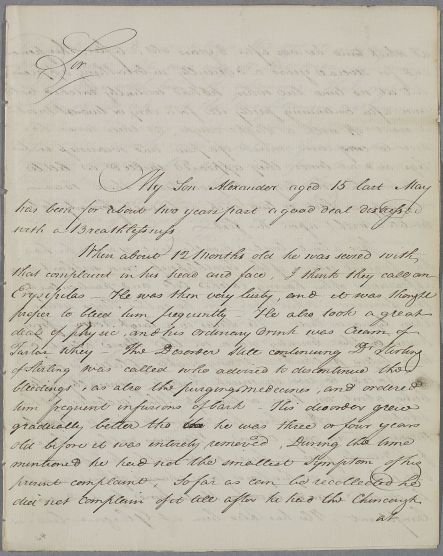 Sir
My Son Alexander aged 15 last May
has been for about two years past a good deal distressed
with a Breathlessness
When about 12 Months old he was seized with
that complaint in his head and face, I think they call an
Erysipelas — He was then very lusty, and it was thought
proper to bleed him frequently — He also took a great
deal of physic, and his ordinary drink was Cream of
Tartar Whey — The Disorder still continuing Dr. Stirling
of Stirling was called who advised to discontinue the
bleedings, as also the purging medicines, and ordered
him frequent infusions of bark — His disorder grew
gradually better tho he was three or four years
old before it was entirely removed, During the time
mentioned he had not the smallest Symptom of his
present complaint, So far as can be recollected he
did not complain of it till after he had the Chincough
at